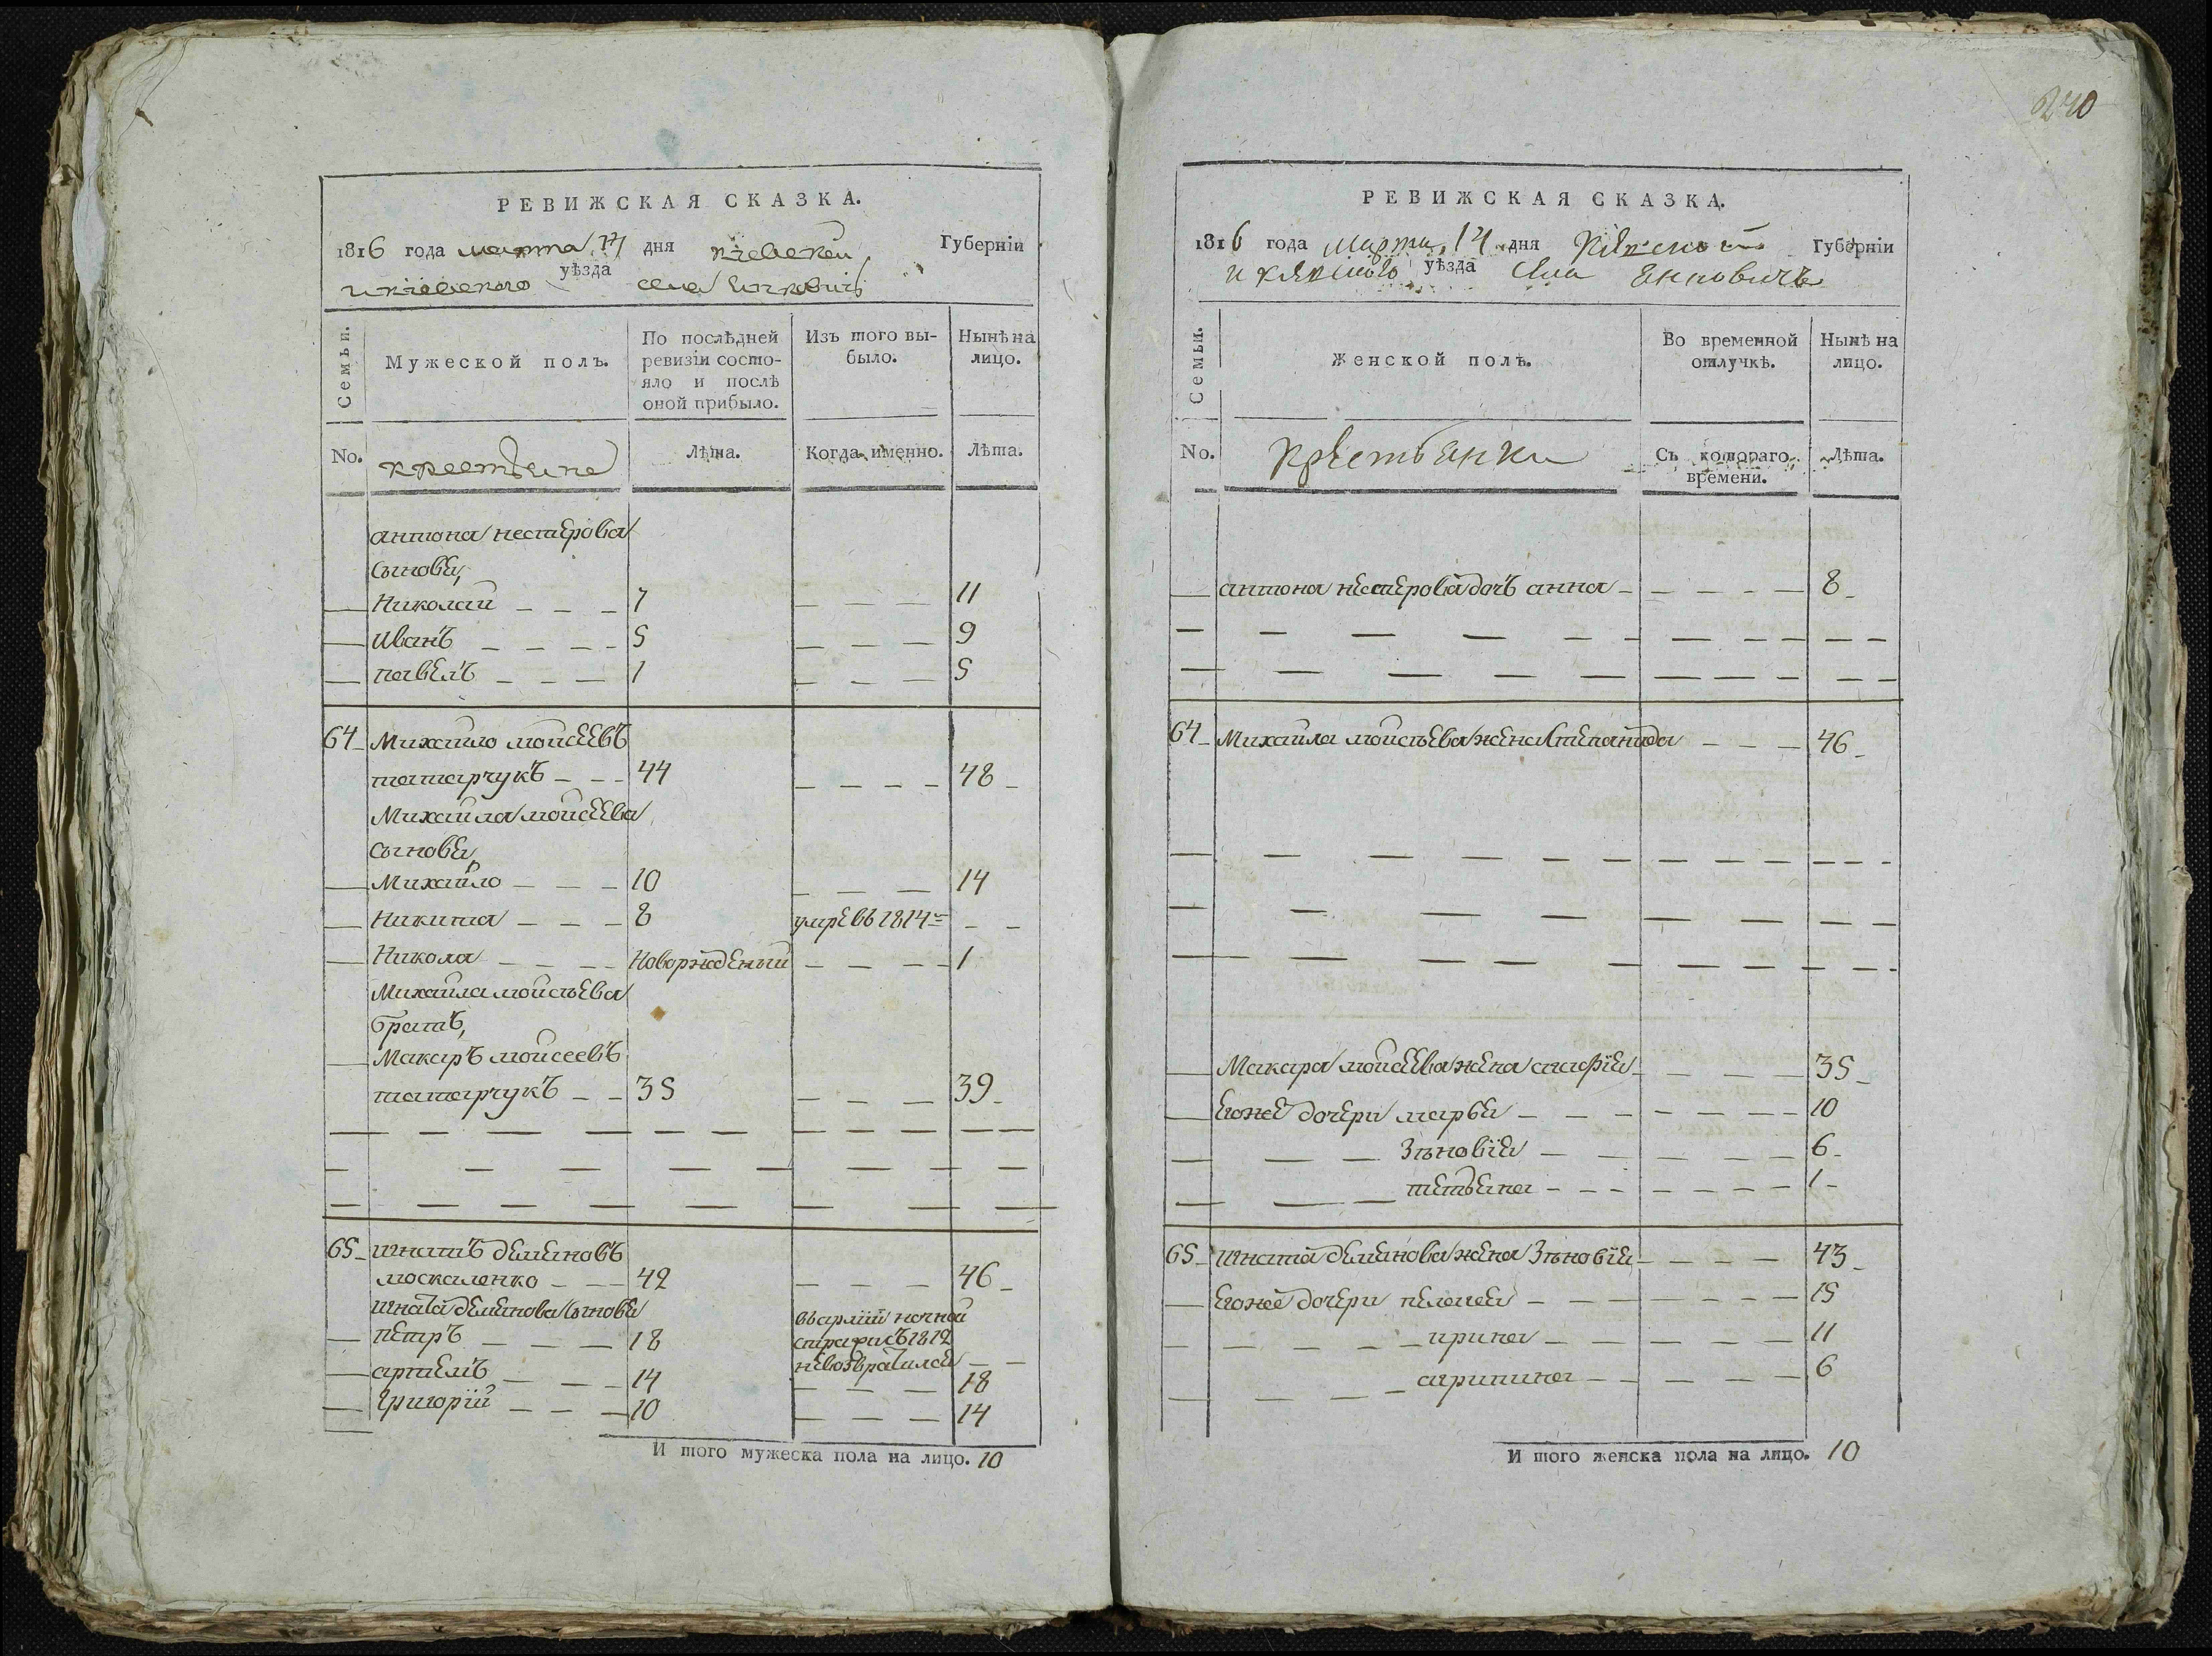 240
РЕВИЖСКАЯ СКАЗКА.
1816 года марта 14 дня кіевской Губерніи
и кіевского уѣзда села Янковичь
Семьи.
Мужеской полъ.
По послѣдней ревизіи состояло и послѣ оной прибыло.
Изъ того выбыло.
Нынѣ на лицо.
No. крестьяне Лѣта. Когда именно. Лѣта.
антона нестерова
сыновья,
— Николай — — — 7 — — — 11
— Иванъ — — — — 5 — — — 9
— павелъ — — — 1 — — — 5
64 Михайло моисеевъ
татарчукъ — — — 44 — — — — 48
Михайла моисеева
сыновья,
— Михайло — — — 10 — — — 14
— Никита — — — 8 умре въ 1814 — —
— Никола — — — — Новорожденый — — — — 1
Михайла моисѣева
братъ,
— Макаръ моисеевъ
татарчукъ — — 35 — — — 39
65 игнатъ демяновъ
москаленко — — — 42 — — — 46
игната демянова сыновья
— петръ — — — 18 въ армій ночной стражи съ 1812 невозвратился — —
— артемъ — — — 14 — — — 18
— Григорій — — — 10 — — — 14
И того мужеска пола на лицо. 10
РЕВИЖСКАЯ СКАЗКА.
1816 года марта 14 дня Кіевской Губерніи
и кіевского уѣзда села Янковичь
Семьи.
Женской полъ.
Во временной отлучкѣ.
Нынѣ на лицо.
No. Крестьянки Съ котораго времени. Лѣта.
— антона нестерова дочь анна — — — — — 8
64 Михайла моисѣева жена степанида — — — 46
— Макара моисеева жена агафія — — — — 35
— Егоже дочери марья — — — — — — — 10
— — — — Зѣновія — — — — — — 6
— — — — тетьяна — — — — — — — 1
65 игната демянова жена Зѣновія — — — — 43
— Егоже дочери пелагея — — — — — — 15
— — — — — — ирина — — — — — — 11
— — — — — агрипина — — — — — — 6
И того женска пола на лицо. 10